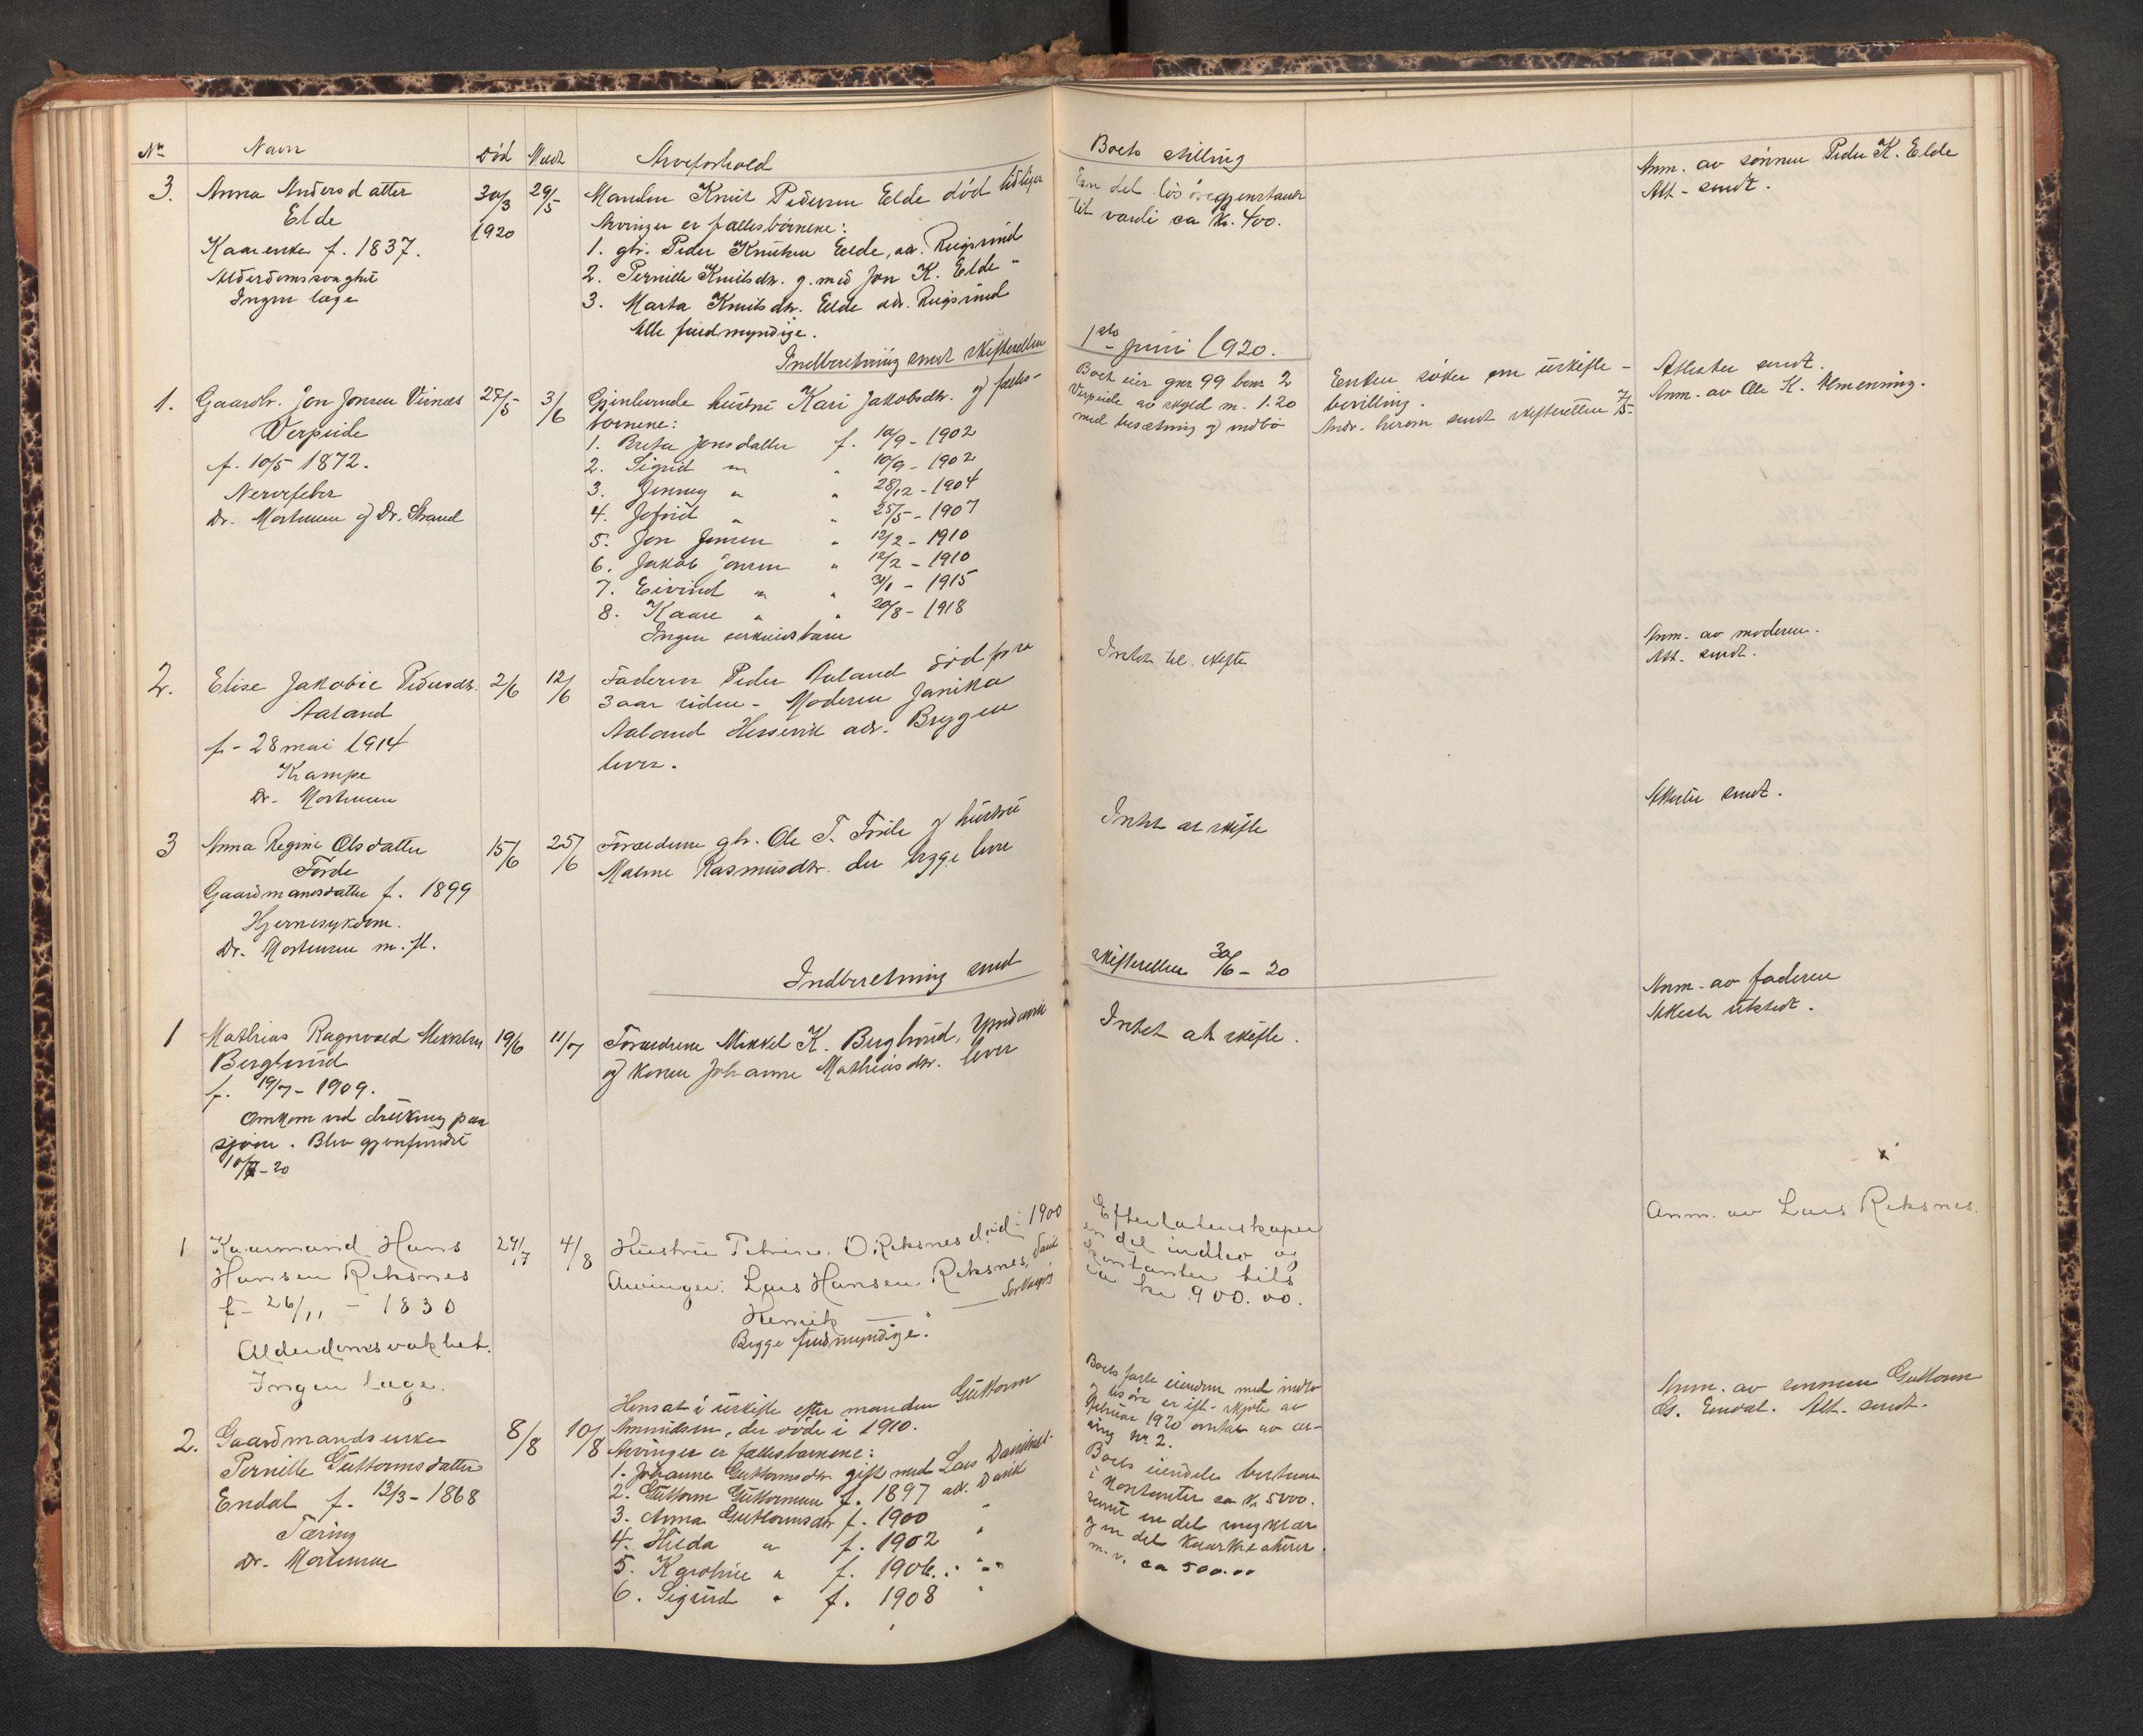 Nr
Navn
Død
Meldt
Arveforhold
Boets stilling
3.
Anna Andersdatter
Elde
Kaarenke f. 1837.
Alderdomssvaghet
Ingen læge
30/3
1920
29/5
Manden Knut Pedersen Elde død tidligere
Arvinger er fællesbørnene:
1. gbr. Peder Knutsen Elde, adr. Rugsund
2. Pernille Knutsdtr. g. med Jon K. Elde "
3. Marta Knutsdtr. Elde adr. Rugsund
Alle fuldmyndige.
En del løsøregjenstande
til værdi ca kr. 400.
Anm. av sønnen Peder K. Elde
Att. sendt.
Indberetning sendt skifteretten
1ste juni 1920.
1.
Gaardbr. Jon Jonsen Virnæs
Verpeide
f. 10/5 1872.
Nervefeber
Dr. Mortensen og Dr. Strand
25/5
3/6
Gjenlevende hustru Kari Jakobsdtr. og fælles-
børnene:
1. Brita Jonsdatter f. 10/9 - 1902
2. Sigrid " " 10/9 - 1902
3. Jenny " " 28/12 - 1904
4. Jofrid " " 25/5 - 1907
5. Jon Jonsen " 12/2 - 1910
6. Jakob Jonsen " 12/2 - 1910
7. Eivind " " 31/1 - 1915
8. Kaare " " 20/8 - 1918
Ingen særkuldsbarn
Boet eier gnr 99 bnr 2
Verpeide av skyld m. 1.20
med besætning og indbo
Enken søker om uskifte-
bevilling.
Andr. herom sendt skifteretten
Attester sendt.
Anm. av Ole K. Almenning.
2.
Elise Jakobie Pedersdtr.
Aaland
f - 28 mai 1914
Krampe
Dr. Mortensen
2/6
12/6
Faderen Peder Aaland død for
3 aar siden - Moderen Janika
Aaland Hessevik adr. Bryggen
lever.
Intet til skifte
Anm. av moderen.
Att. sendt.
3
Anna Regine Olsdatter
Førde
Gaardmandsdatter f. 1899
Hjernesykdom.
Dr. Mortensen m. fl.
15/6
25/6
Forældrene gbr. Ole T. Førde og hustru
Malene Rasmusdtr. der begge lever
Intet at skifte
Attester sendt.
Indberetning sendt
skifteretten 30/6 - 20
1
Mathias Ragnvald Mikkelsen
Berglund
f. 19/7 - 1909.
Omkom ved drukning paa
sjøen. Blev gjenfundet
10/7 - 20
19/6
11/7
Forældrene Mikkel K. Berglund,
og konen Johanne Mathiasdtr. lever
Intet at skifte.
Anm. av faderen
Attest utstedt.
1
Kaarmand Hans
Hansen Reksnes
f - 26/11 - 1830
Alderdomsvakhet.
Ingen læge.
24/7
4/8
Hustru Petrine O. Reksnes død i 1900
Arvinger: Lars Hansen Reksnes,
Henrik — " —
Begge fuldmyndige.
Efterlatenskaper
en del indbo og
kontanter tils
ca kr 900.00.
Anm. av Lars Reksnes.
2.
Gaardmandsenke
Pernille Guttormsdatter
Endal f. 13/3 - 1868
Tæring
Dr. Mortensen
8/8
10/8
Hensat i uskifte efter manden Guttorm
Amundsen, der døde i 1910.
Arvinger er fællesbarnene:
1. Johanne Guttormsdtr gift med Lars Danielsen
2. Guttorm Guttormsen f. 1897 adr. Davik
3. Anna Guttormsdtr f. 1900 "
4. Hilda " f. 1902 "
5. Karoline " f. 1906. "
6. Sigurd " f. 1908 "
Boets faste eiendom med indbo
og løsøre er ifl. skjøte av
februar 1920 overtat av ar-
ving nr. 2.
Boets eiendele bestaar
i kontanter ca kr. 5000.
samt en del
og en del
m. v. ca 500.00
Anm. av sønnen Guttorm
G. Endal. Att. sendt.